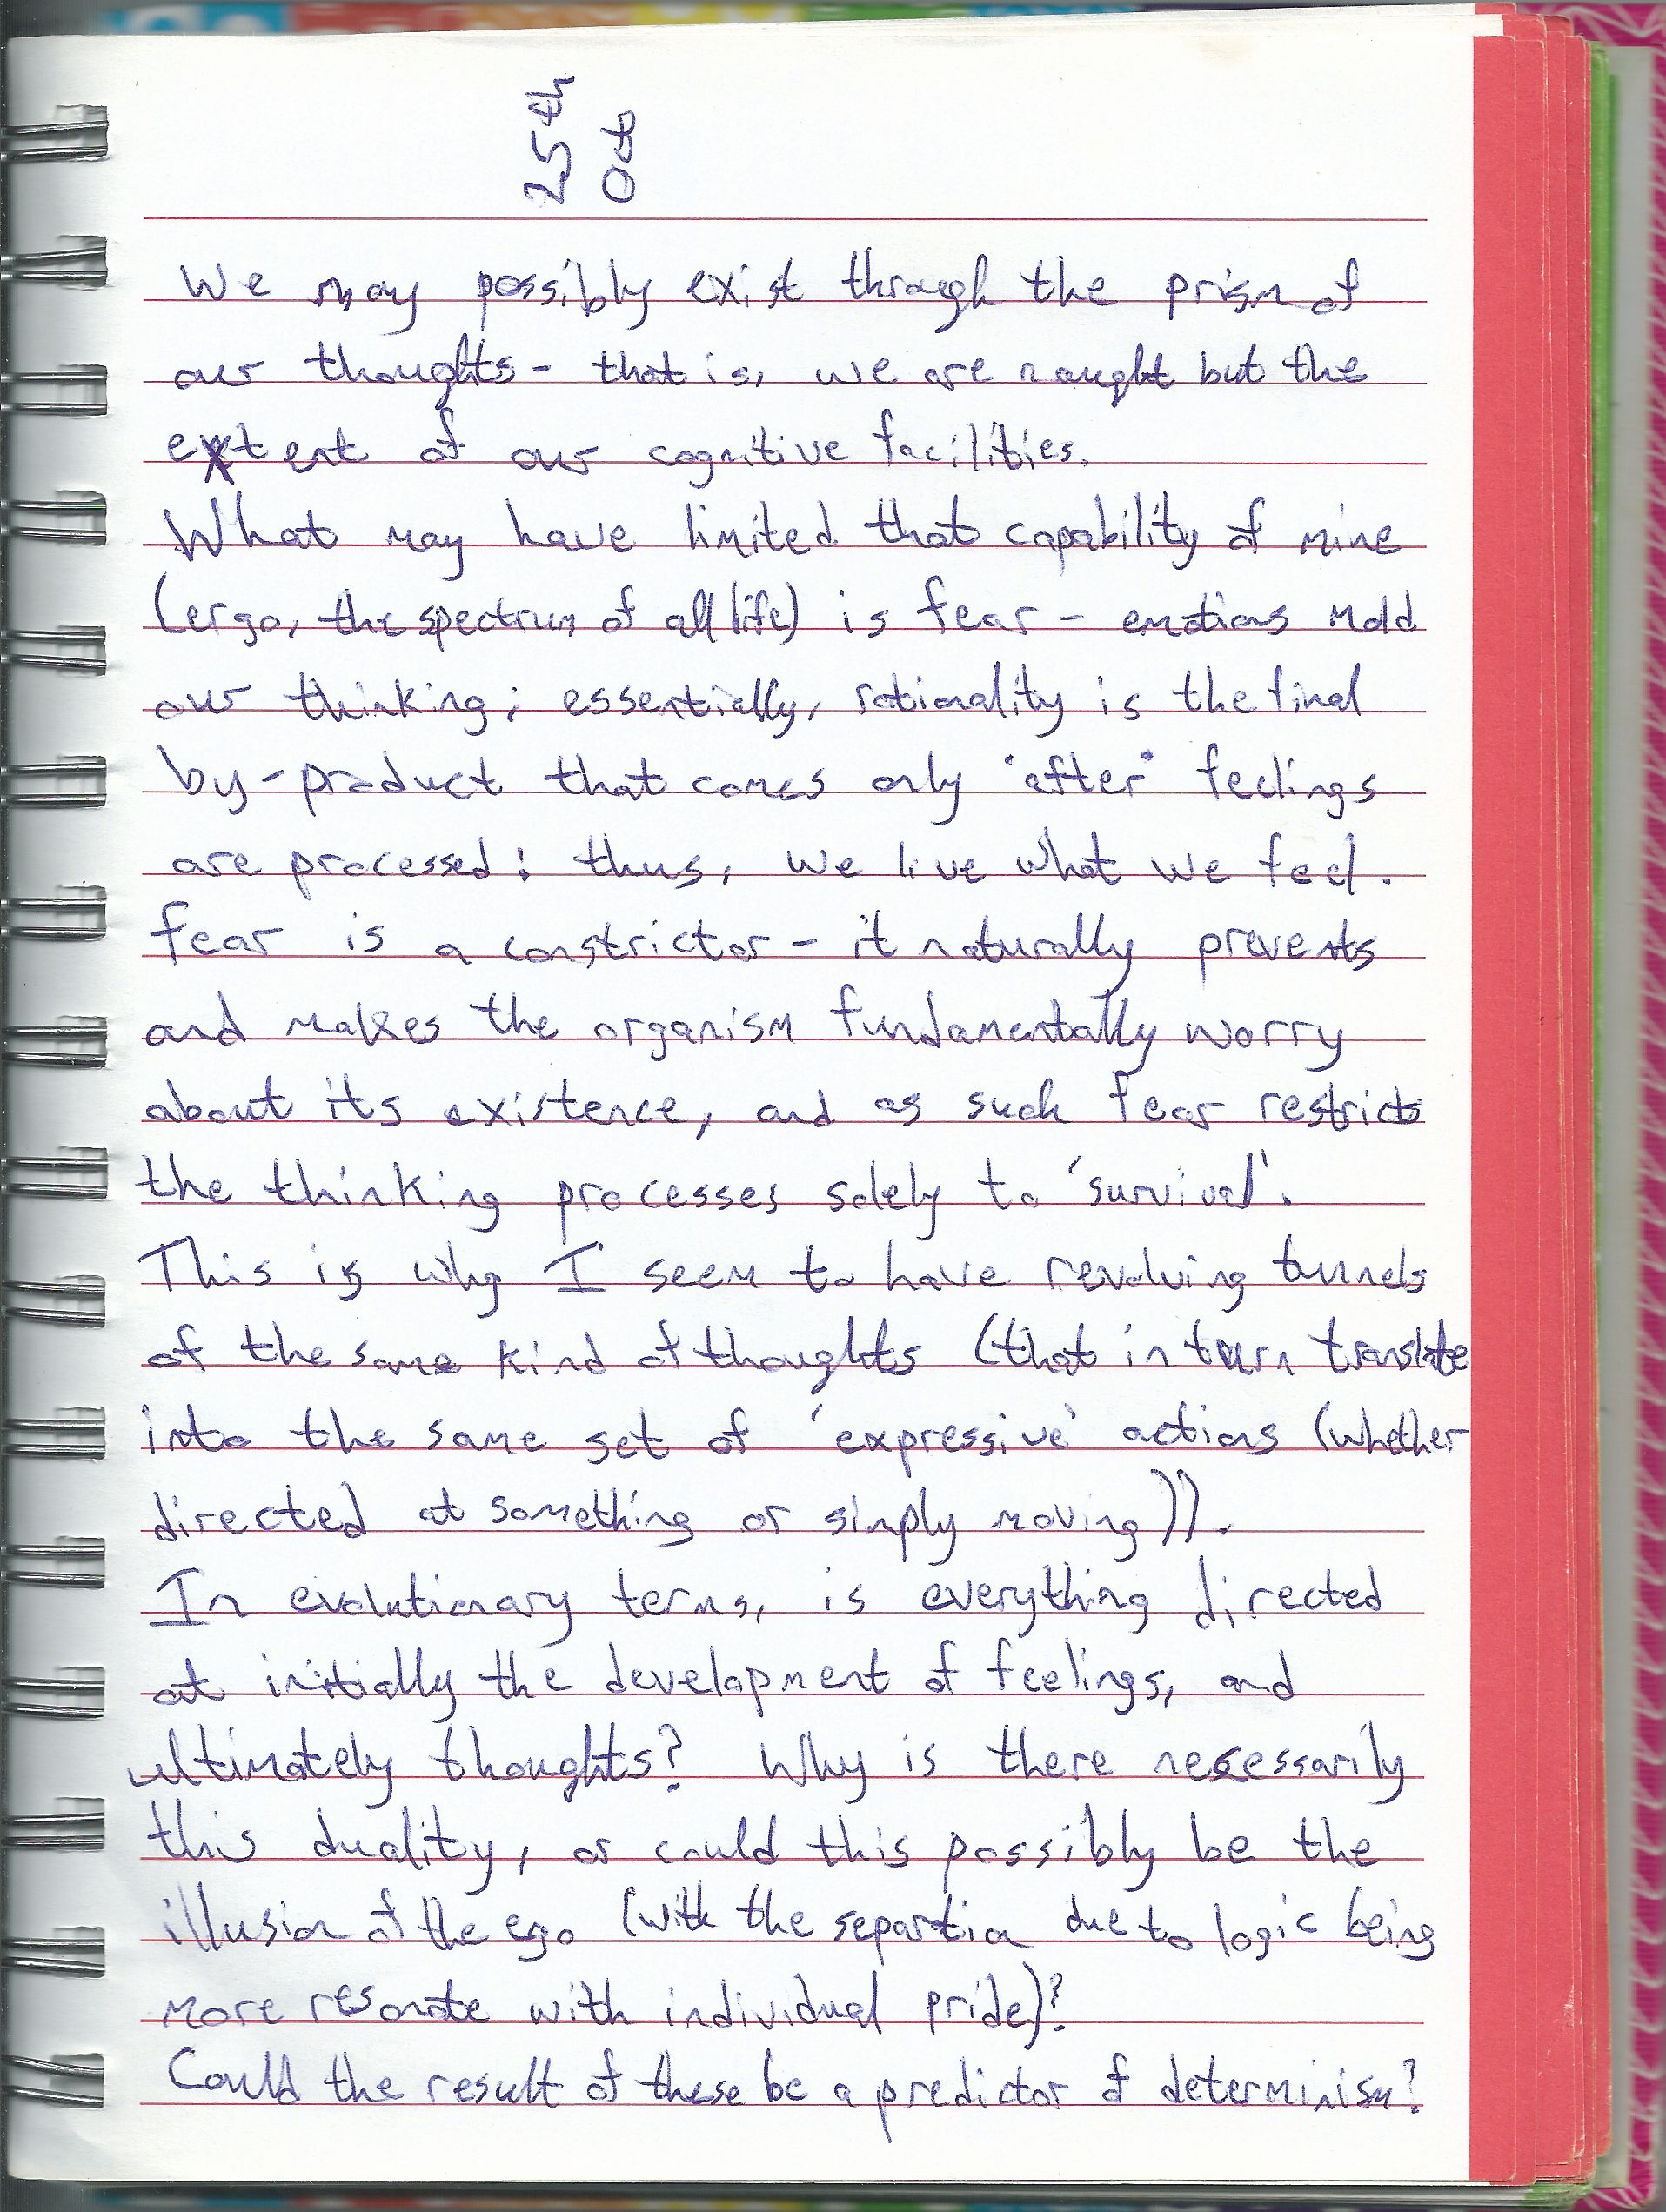 25th
Oct
We may possibly exist through the prism of
our thoughts - that is, we are naught but the
extent of our cognitive facilities.
What may have limited that capability of mine
(ergo, the spectrum of all life) is fear - emotions mold
our thinking; essentially, rationality is the final
by-product that comes only "after" feelings
are processed: thus, we live what we feel.
Fear is a constrictor - it naturally prevents
and makes the organism fundamentally worry
about its existence, and as such fear restricts
the thinking processes solely to 'survival'.
This is why I seem to have revolving tunnels
of the same kind of thoughts (that in turn translate
into the same set of 'expressive' actions (whether
directed at something or simply moving)).
In evolutionary terms, is everything directed
at initially the development of feelings, and
ultimately thoughts? Why is there necessarily
this duality, or could this possibly be the
illusion of the ego (with the separation due to logic being
more resonate with individual pride)?
Could the result of these be a predictor of determinism?